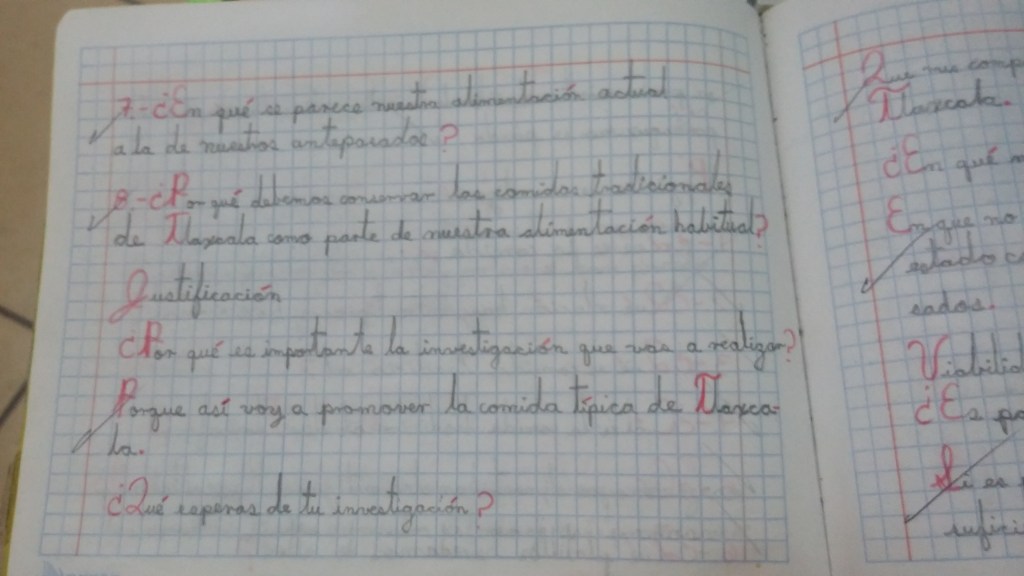 7.-¿En qué se parece nuestra alimentación actual
a la de nuestros antepasados?
8-¿Por qué debemos conservar las comidas tradicionales
de Tlaxcala como parte de nuestra alimentación habitual?
Justificación
¿Por qué es importante la investigación que vas a realizar?
Porque así voy a promover la comida típica de Tlaxca-
la.
¿Qué esperas de tu investigación?
Que me comp
Tlaxcala.
¿En qué
En que no
estado
sados.
Viabilid
¿Es po
Si es
sufici